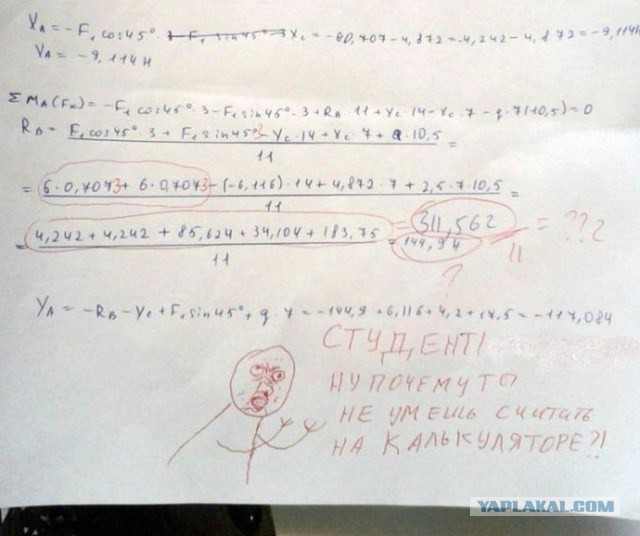 XA = -F1 cos45° · Xc = -60,707 - 4,872 = -4,242 - 4,872 = -9,114H
VA = -9,114H
ΣMA(Fк) = -F1 cos45°·3 - F1 sin45°·3 + RB·11 + Yc·14 - Xc·7 - q·7(10,5) = 0
RB = F1 cos45°·3 + F1 sin45°3 - Yc·14 + Xc·7 + q·10,5 =
11
= 6·0,7073 + 6·0,7073 - (-6,116)·14 + 4,872·7 + 2,5·7·10,5 =
11
= 4,242 + 4,242 + 85,624 + 34,104 + 183,75 = 311,562 = ???
11 = 144,94 11
?
YA = -RB - Yc + F1 sin45° + q 7 = -144,9 + 6,116 + 4,2 + 17,5 = -117,084
СТУДЕНТ!
НУ ПОЧЕМУ ТЫ
НЕ УМЕШЬ СЧИТАТЬ
НА КАЛЬКУЛЯТОРЕ?!
YAPLAKAL.COM